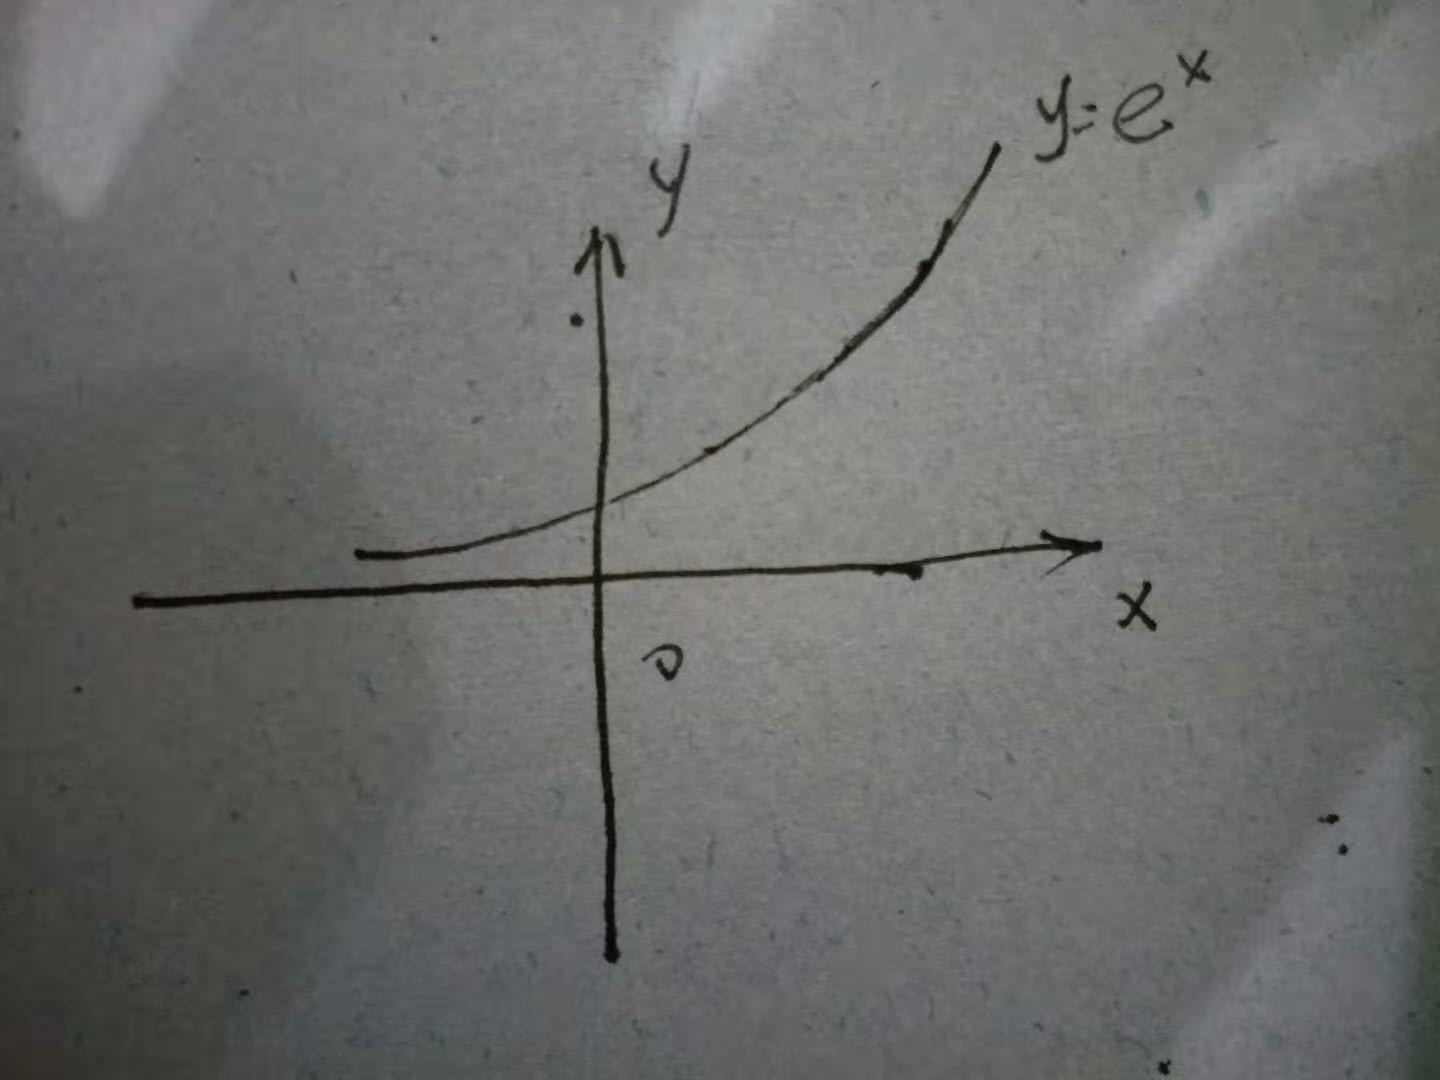 y=eˣ
y
x
0